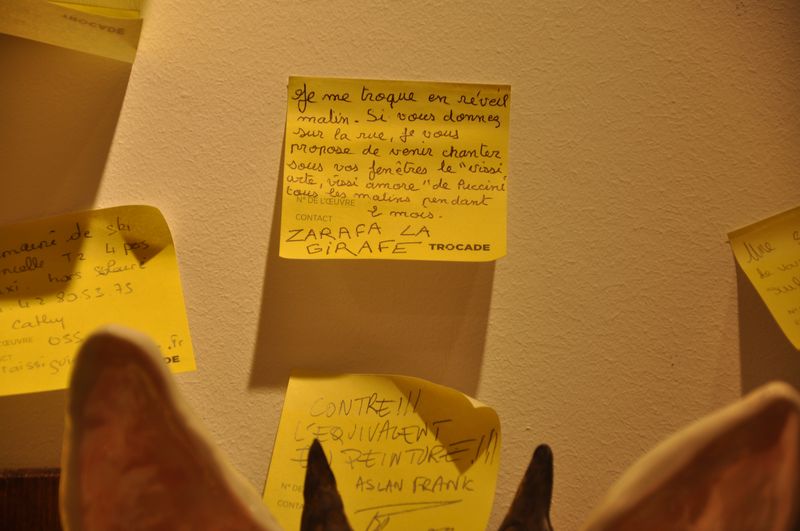 TROCADE
Je me troque en réveil
matin. Si vous donnez
sur la rue, je vous
propose de venir chanter
sous vos fenêtres le "vissi
arte, vissi amore" de Puccini
tous les matins pendant
N° DE L'ŒUVRE
2 mois.
CONTACT
ZARAFA LA
GIRAFE TROCADE
de ski
T2 4 pos
hors
42 80 53 75
Cathy
ŒUVRE 055
.fr
DE
Une
de vou
CONTRE!!!
L'EQUIVALENT
EN PEINTURE!!!
N° DE
ASLAN FRANK
CONTA